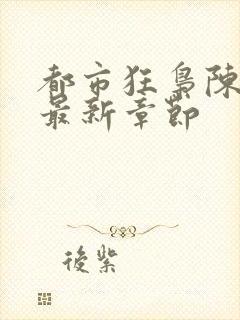 都市狂梟陳
最新章節
後紫